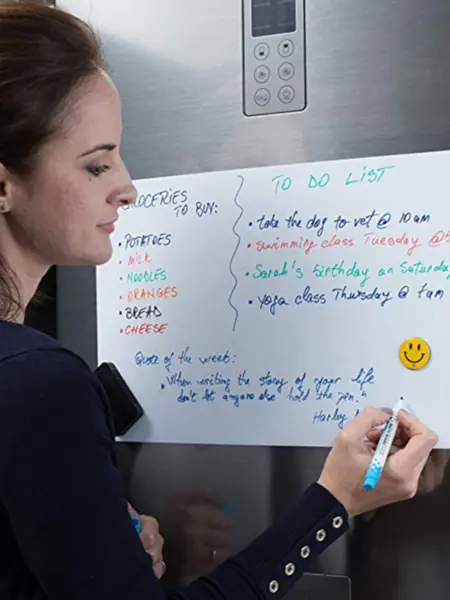 GROCERIES
TO BUY:
• POTATOES
• MILK
• NOODLES
• ORANGES
• BREAD
• CHEESE
TO DO LIST
• take the dog to vet @ 10 am
• swimming class Tuesday @
• Sarah's birthday on Saturday
• yoga class Thursday @ 7am
Quote of the week:
• "When writing the story of your life
don't let anyone else hold the pen."
Harley